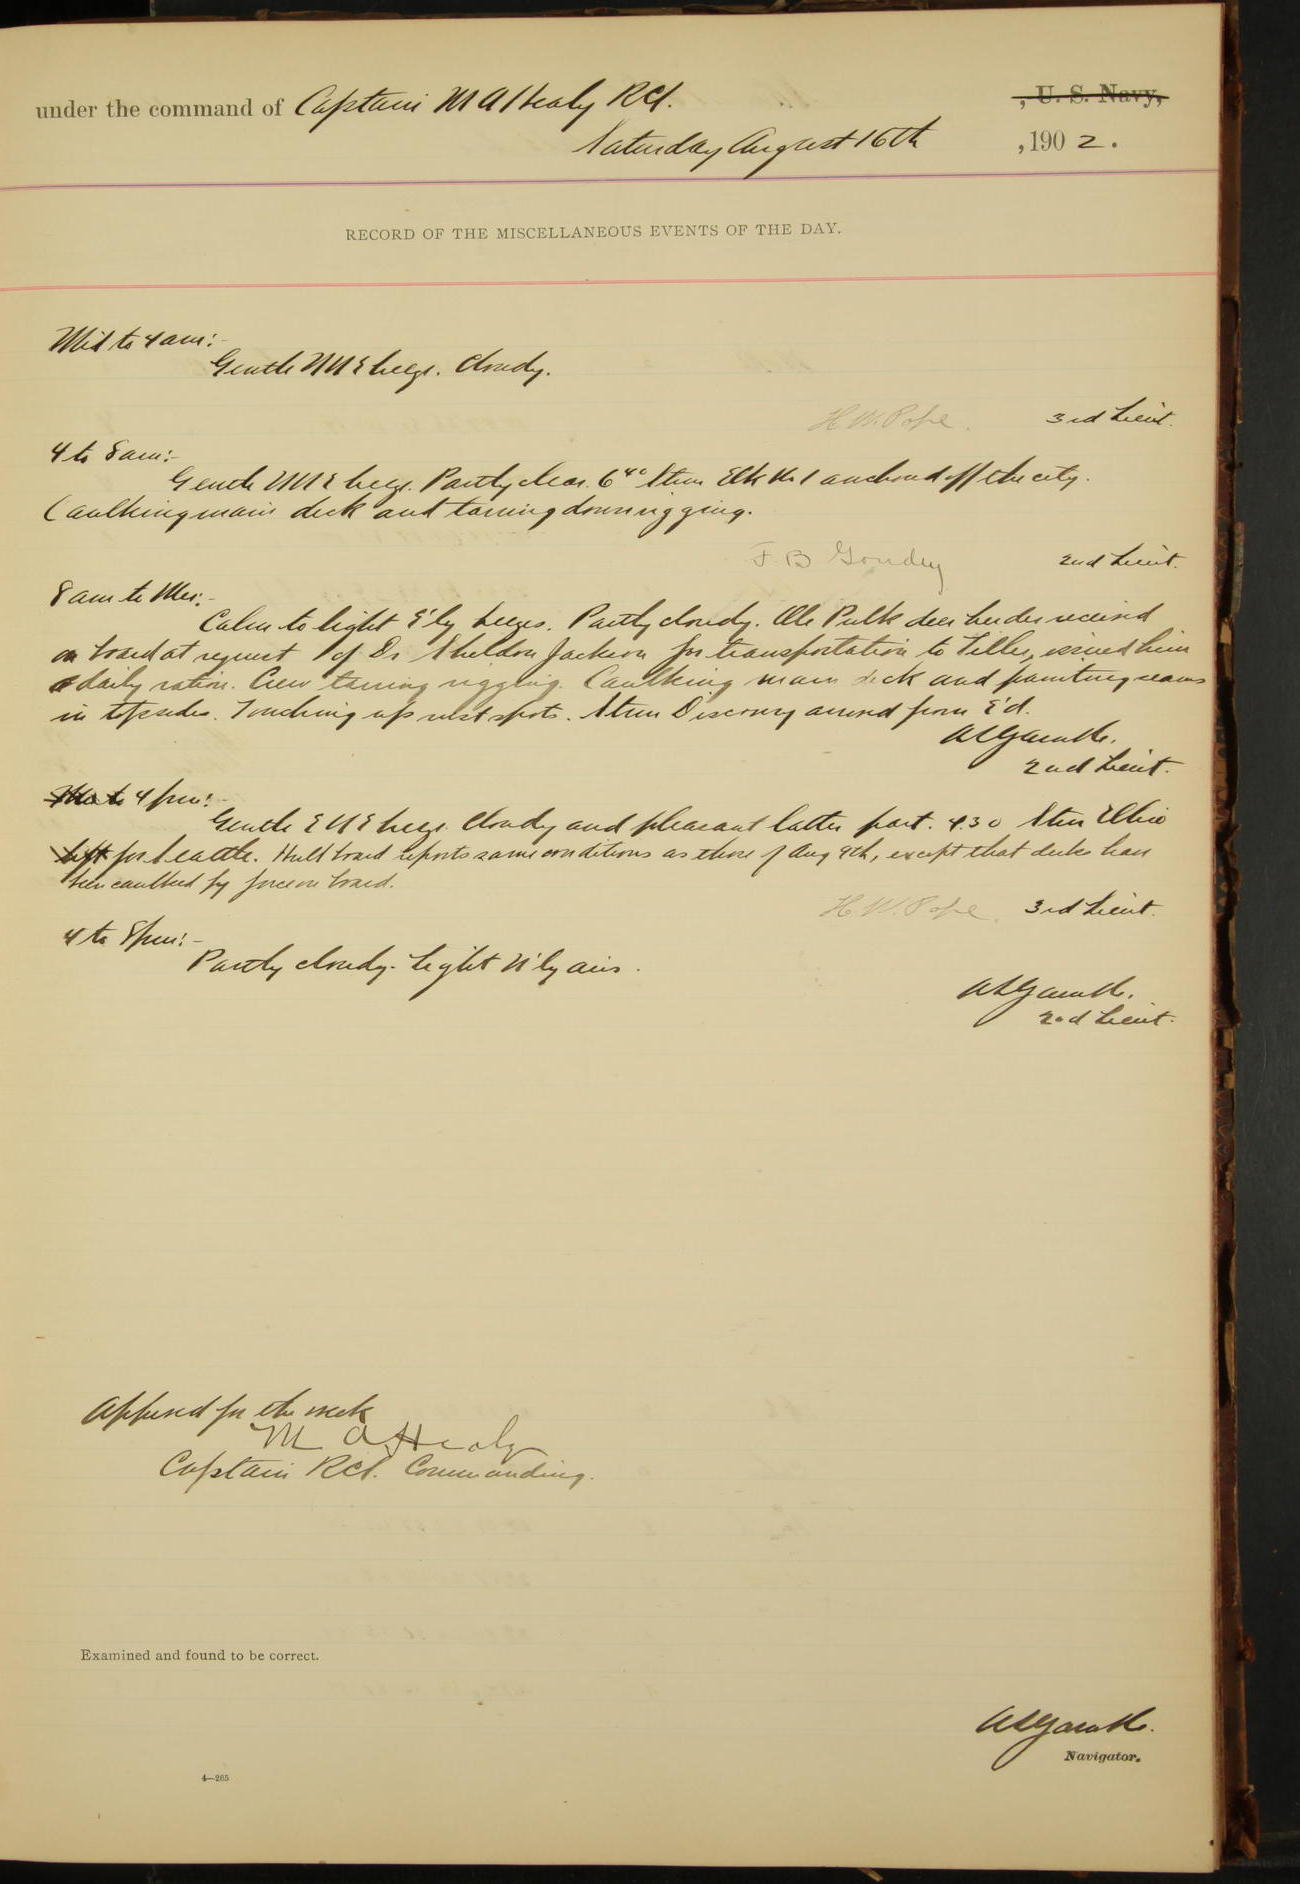 under the command of Captain M A Healy RCS. , U. S. Navy,
Saturday August 16th , 190 2.
RECORD OF THE MISCELLANEOUS EVENTS OF THE DAY.
Mid to 4 am:-
Gentle NNE breeze. Cloudy.
H. W. Pope. 3rd Lieut.
4 to 8 am:-
Gentle NNE breeze. Partly clear. 6 40 Stmr Elk No 1 anchored off the city.
Caulking main deck and tarring down rigging.
F B Goudey 2nd Lieut.
8 am to Mer:-
Calm to light E'ly breezes. Partly cloudy. Ole Pulk deer herder received
on board at request of Dr Sheldon Jackson for transportation to Teller, issued him
a daily ration. Crew tarring rigging. Caulking main deck and painting seams
in topsides. Touching up rust spots. Stmr Discovery arrived from E'd.
2nd Lieut.
Mer to 4 pm:-
Gentle ENE breeze. Cloudy and pleasant latter part. 4.30 Stmr Ohio
left for Seattle. Hull board reports same conditions as those of Aug 9th, except that decks have
been caulked by force on board.
H. W. Pope. 3rd Lieut.
4 to 8 pm:-
Partly cloudy. Light N'ly airs.
2nd Lieut.
Approved for the week
M A Healy
Captain RCS. Commanding.
Examined and found to be correct.
Navigator.
4—265